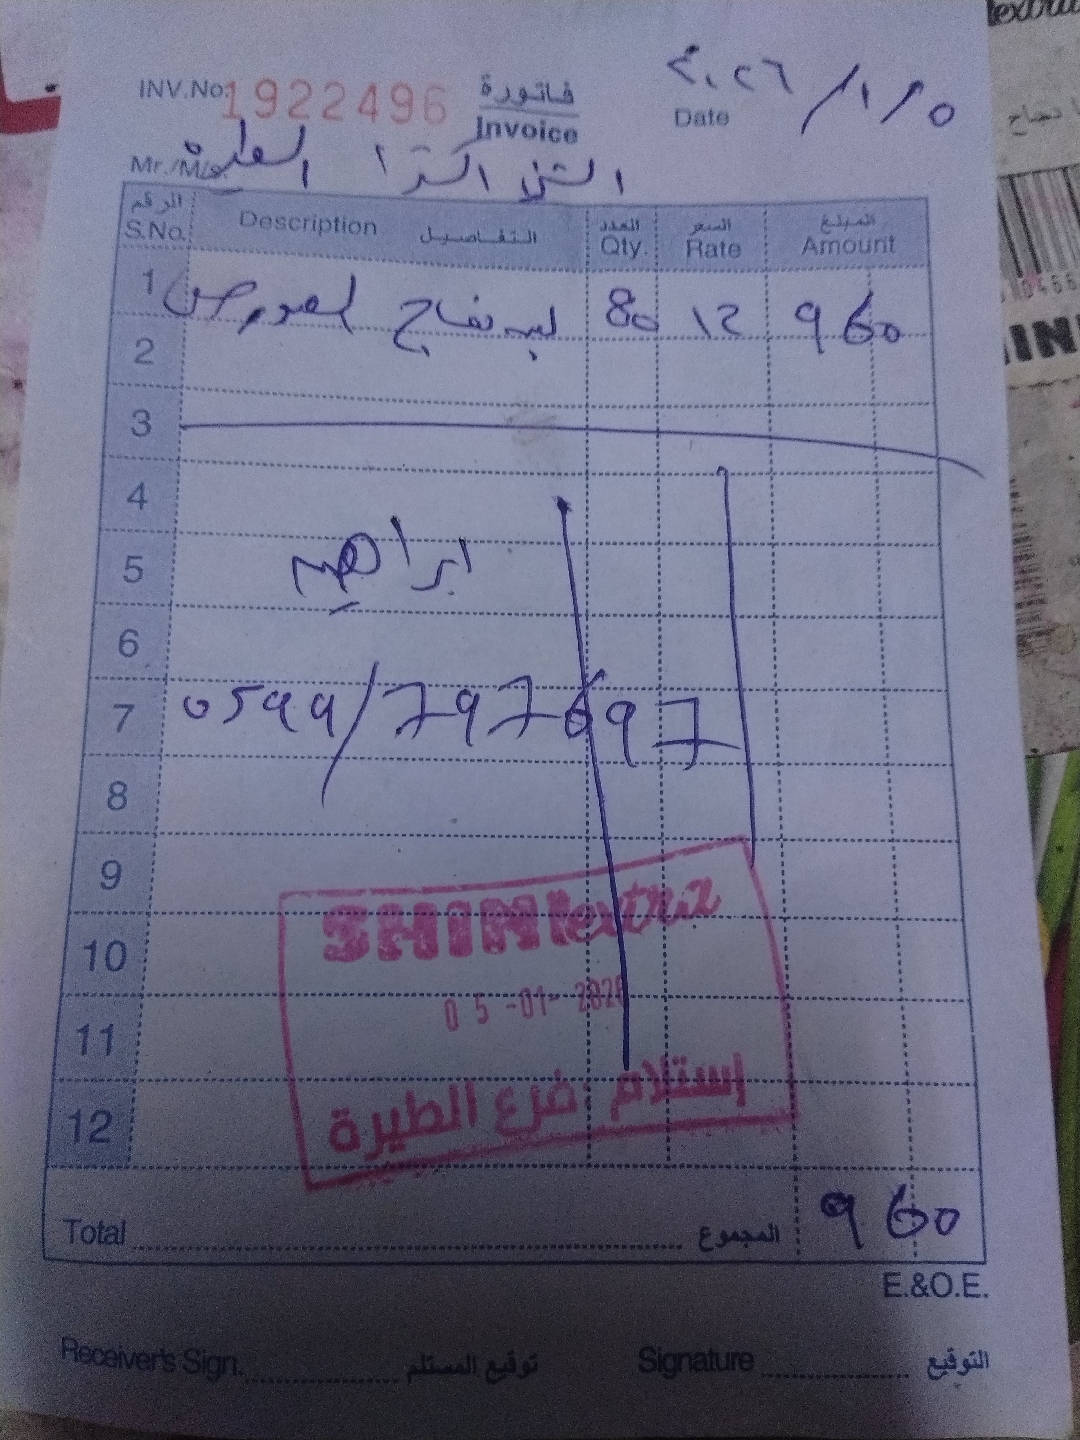 INV.No: 1922496
فاتورة
Invoice
Date ٢٠٢٦/١/٥
Mr./M/s. الشني اكسترا الطيرة
الرقم التفاصيل العدد السعر المبلغ
S.No. Description Qty. Rate Amount
1 تفاح 80 ١٢ 960
2
3
4
5 ابراهيم
6
7 0599/797697
8
9
10
11
12
SHINIextra
05-01-2026
إستلام فرع الطيرة
Total المجموع 960
E.&O.E.
Receiver's Sign. توقيع المستلم Signature التوقيع
extra
INI